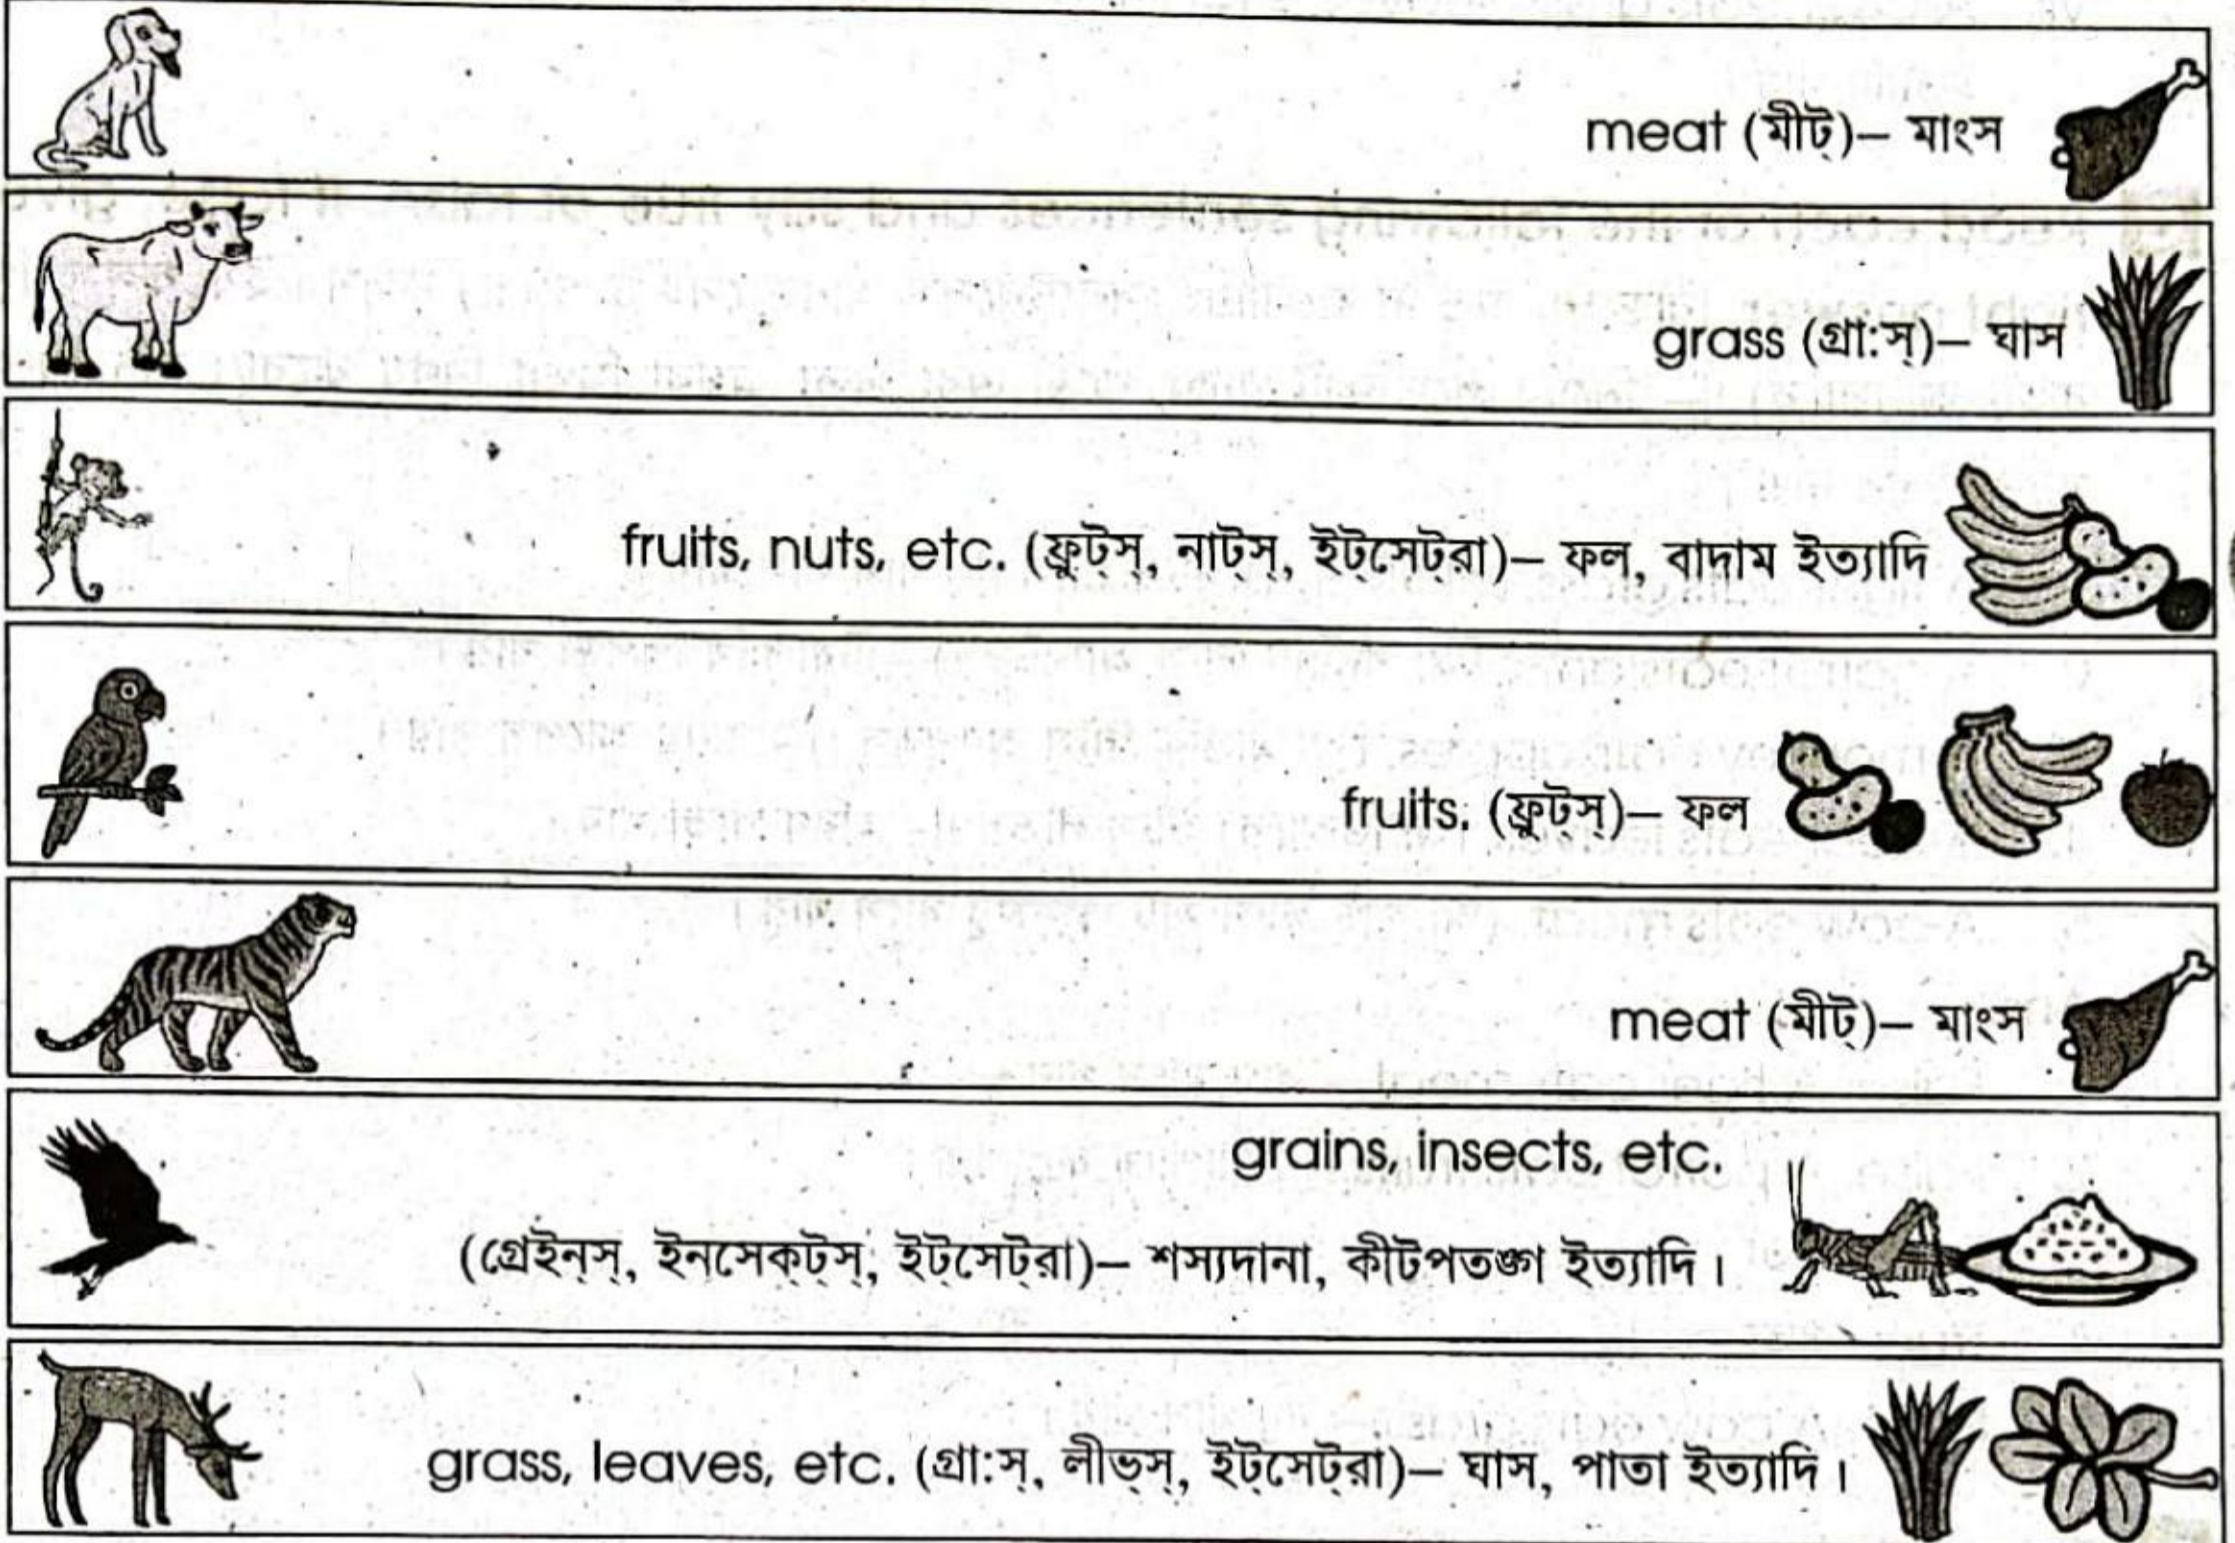 meat (মীট্)– মাংস
grass (গ্রা:স্)– ঘাস
fruits, nuts, etc. (ফ্রুট্স্, নাট্স্, ইট্সেট্রা)– ফল, বাদাম ইত্যাদি
fruits. (ফ্রুট্স্)– ফল
meat (মীট্)– মাংস
grains, insects, etc.
(গ্রেইন্স্, ইনসেক্ট্স্, ইট্সেট্রা)– শস্যদানা, কীটপতঙ্গ ইত্যাদি।
grass, leaves, etc. (গ্রা:স্, লীভ্স্, ইট্সেট্রা)– ঘাস, পাতা ইত্যাদি।